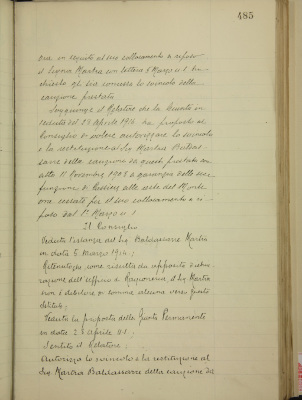 485
ora, in seguito al suo collocamento a riposo
il Signor Martin con lettera 5 Marzo u.s. ha
chiesto gli sia concesso lo svincolo della
cauzione prestata
Soggiunge il Relatore che la Giunta in
seduta del 24 Aprile 1914 ha proposto al
Consiglio di volere autorizzare lo svincolo
e la restituzione al Sig Martin Baldas
sarre della cauzione da questi prestata con
atto 11 Novembre 1903 a garanzia delle sue
funzioni di Cassiere alle sede del
cessato per il suo collocamento a ri
poso dal 1° Marzo u.s.
Il Consiglio
Veduta l'istanza del Sig Baldassarre Martin
in data 5 Marzo 1914;
Ritenuto, come risulta da apposita dichia
razione dell'Ufficio di Ragioneria il Sig Martin
non è debitore di somma alcuna verso questo
Istituto;
Veduta la proposta della Giunta Permanente
in data 24 Aprile u.s.;
Sentito il Relatore;
Autorizza lo svincolo e la restituzione al
Sig Martin Baldassarre della cauzione da